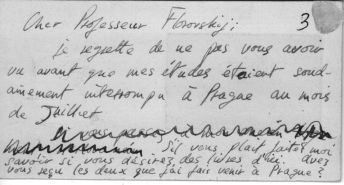 3
Cher Professeur Florovskij;
je regrette de ne pas vous avoir
vu avant que mes études étaient soud-
ainement interrompu à Prague au mois
de Juillet.
S'il vous plait faites moi
savoir si vous désirez des livres d'ici. Avez
vous reçu les deux que j'ai fais venir à Prague?